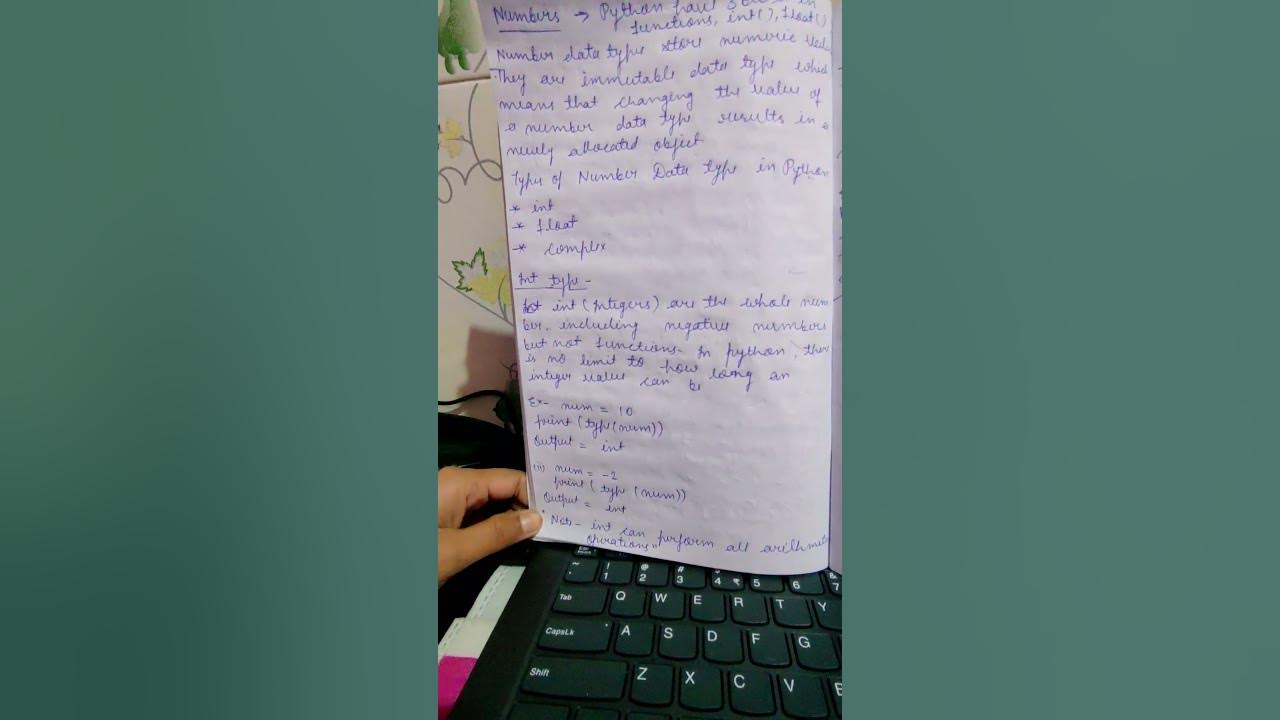 Numbers → Python have in
functions, int(), float()
Number data type store numeric
They are immutable data type which
means that changing the value of
a number data type results in a
newly allocated object
Types of Number Data type in Python
* int
* float
* complex
Int type -
int (Integers) are the whole num
ber, including negative numbers
but not functions. In python, there
is no limit to how long an
integer value can be
Ex- num = 10
print (type(num))
Output = int
(ii) num = -2
print( type (num))
Output = int
Note- int can perform all arithmetic
operations"
~ ! @ # $ ₹ & 
1 2 3 4 5 6 7
Tab Q W E R T Y
CapsLk A S D F G
Shift Z X C V B